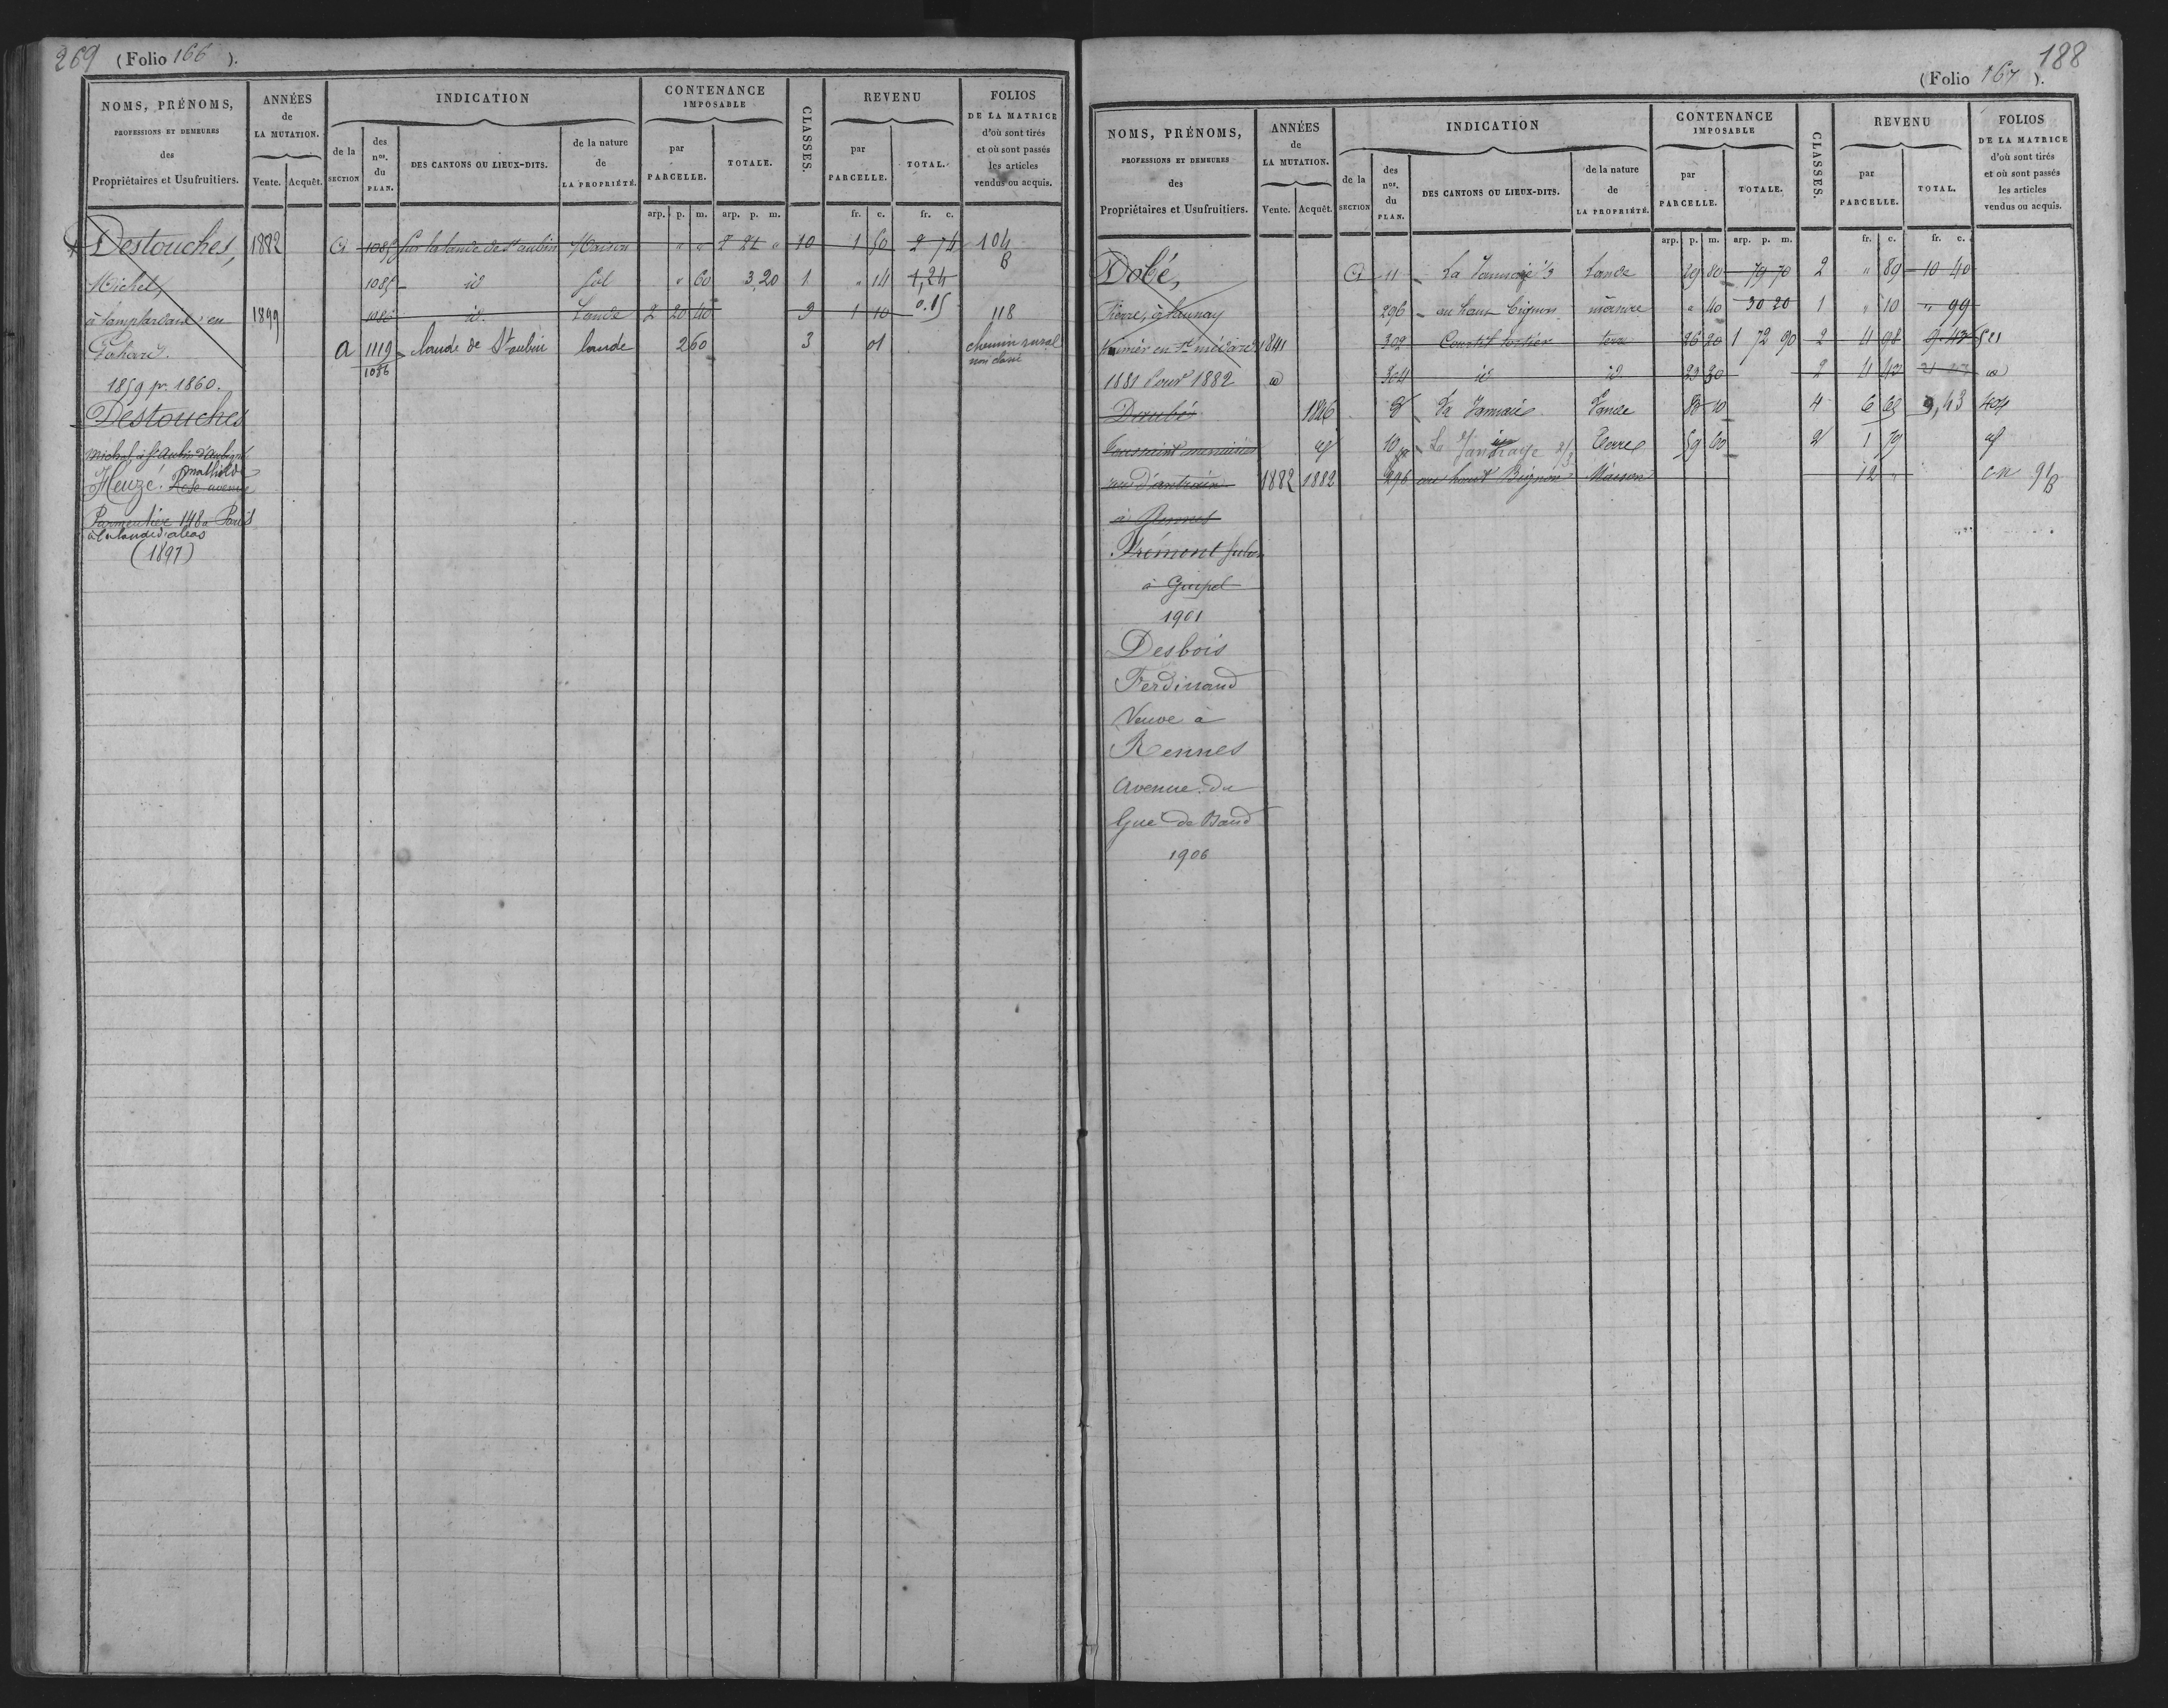 269 (Folio 166 ).
NOMS, PRÉNOMS,
PROFESSIONS ET DEMEURES
des
Propriétaires et Usufruitiers.
ANNÉES
de
LA MUTATION.
Vente. Acquêt.
INDICATION
de la
SECTION
des
nos.
du
PLAN.
DES CANTONS OU LIEUX-DITS.
de la nature
de
LA PROPRIÉTÉ.
CONTENANCE
IMPOSABLE
par
PARCELLE.
TOTALE.
CLASSES.
REVENU
par
PARCELLE.
TOTAL.
FOLIOS
DE LA MATRICE
d'où sont tirés
et où sont passés
les articles
vendus ou acquis.
arp. p. m. arp. p. m. fr. c. fr. c.
Destouches, 1882 a 1085 Sur la lande de St aubin Maison " " 2 21 " 10 1 50 2 74 104 B
Michel, 1085 id Sol " 60 3,20 1 " 14 1,24
en 1899 1086 id. Lande 2 20 40 3 1 10 0.15 118
Gahard. a 1119 lande de St aubin lande 2 60 3 01 chemin rural
1086 non classé
1859 pr. 1860.
Destouches
Michel à St Aubin d'Aubigné
Mathilde
Heuzé. Rose avenue
Parmentier 148 a Paris
(1897)
188
(Folio 167 ).
NOMS, PRÉNOMS,
PROFESSIONS ET DEMEURES
des
Propriétaires et Usufruitiers.
ANNÉES
de
LA MUTATION.
Vente. Acquêt.
INDICATION
de la
SECTION
des
nos.
du
PLAN.
DES CANTONS OU LIEUX-DITS.
de la nature
de
LA PROPRIÉTÉ.
CONTENANCE
IMPOSABLE
par
PARCELLE.
TOTALE.
CLASSES.
REVENU
par
PARCELLE.
TOTAL.
FOLIOS
DE LA MATRICE
d'où sont tirés
et où sont passés
les articles
vendus ou acquis.
arp. p. m. arp. p. m. fr. c. fr. c.
Dobé, a 11 La Jannaie 1/3 Lande 29 80 79 70 2 " 89 10 40
Pierre, à launay 296 au haut bignon masure " 40 30 20 1 " 10 " 99
fermier en St médard 1841 302 Courtil terre 26 20 1 72 90 2 4 98 9 43 521
1881 Pour 1882 id 304 id id 23 30 2 4 43 id
Daubé 1846 8 La Jannaie Lande 83 10 4 6 65 9,43 404
Toussaint menuisier id 10 La Janhaye 2/3 Terre 59 60 2 1 79 id
rue d'antrain 1882 1882 296 au haut Bignon Maison 12 " cn 9/B
à Rennes
Frémont Jules
à Guipel
1901
Desbois
Ferdinand
Veuve à
Rennes
Avenue du
Gué de Baud
1906